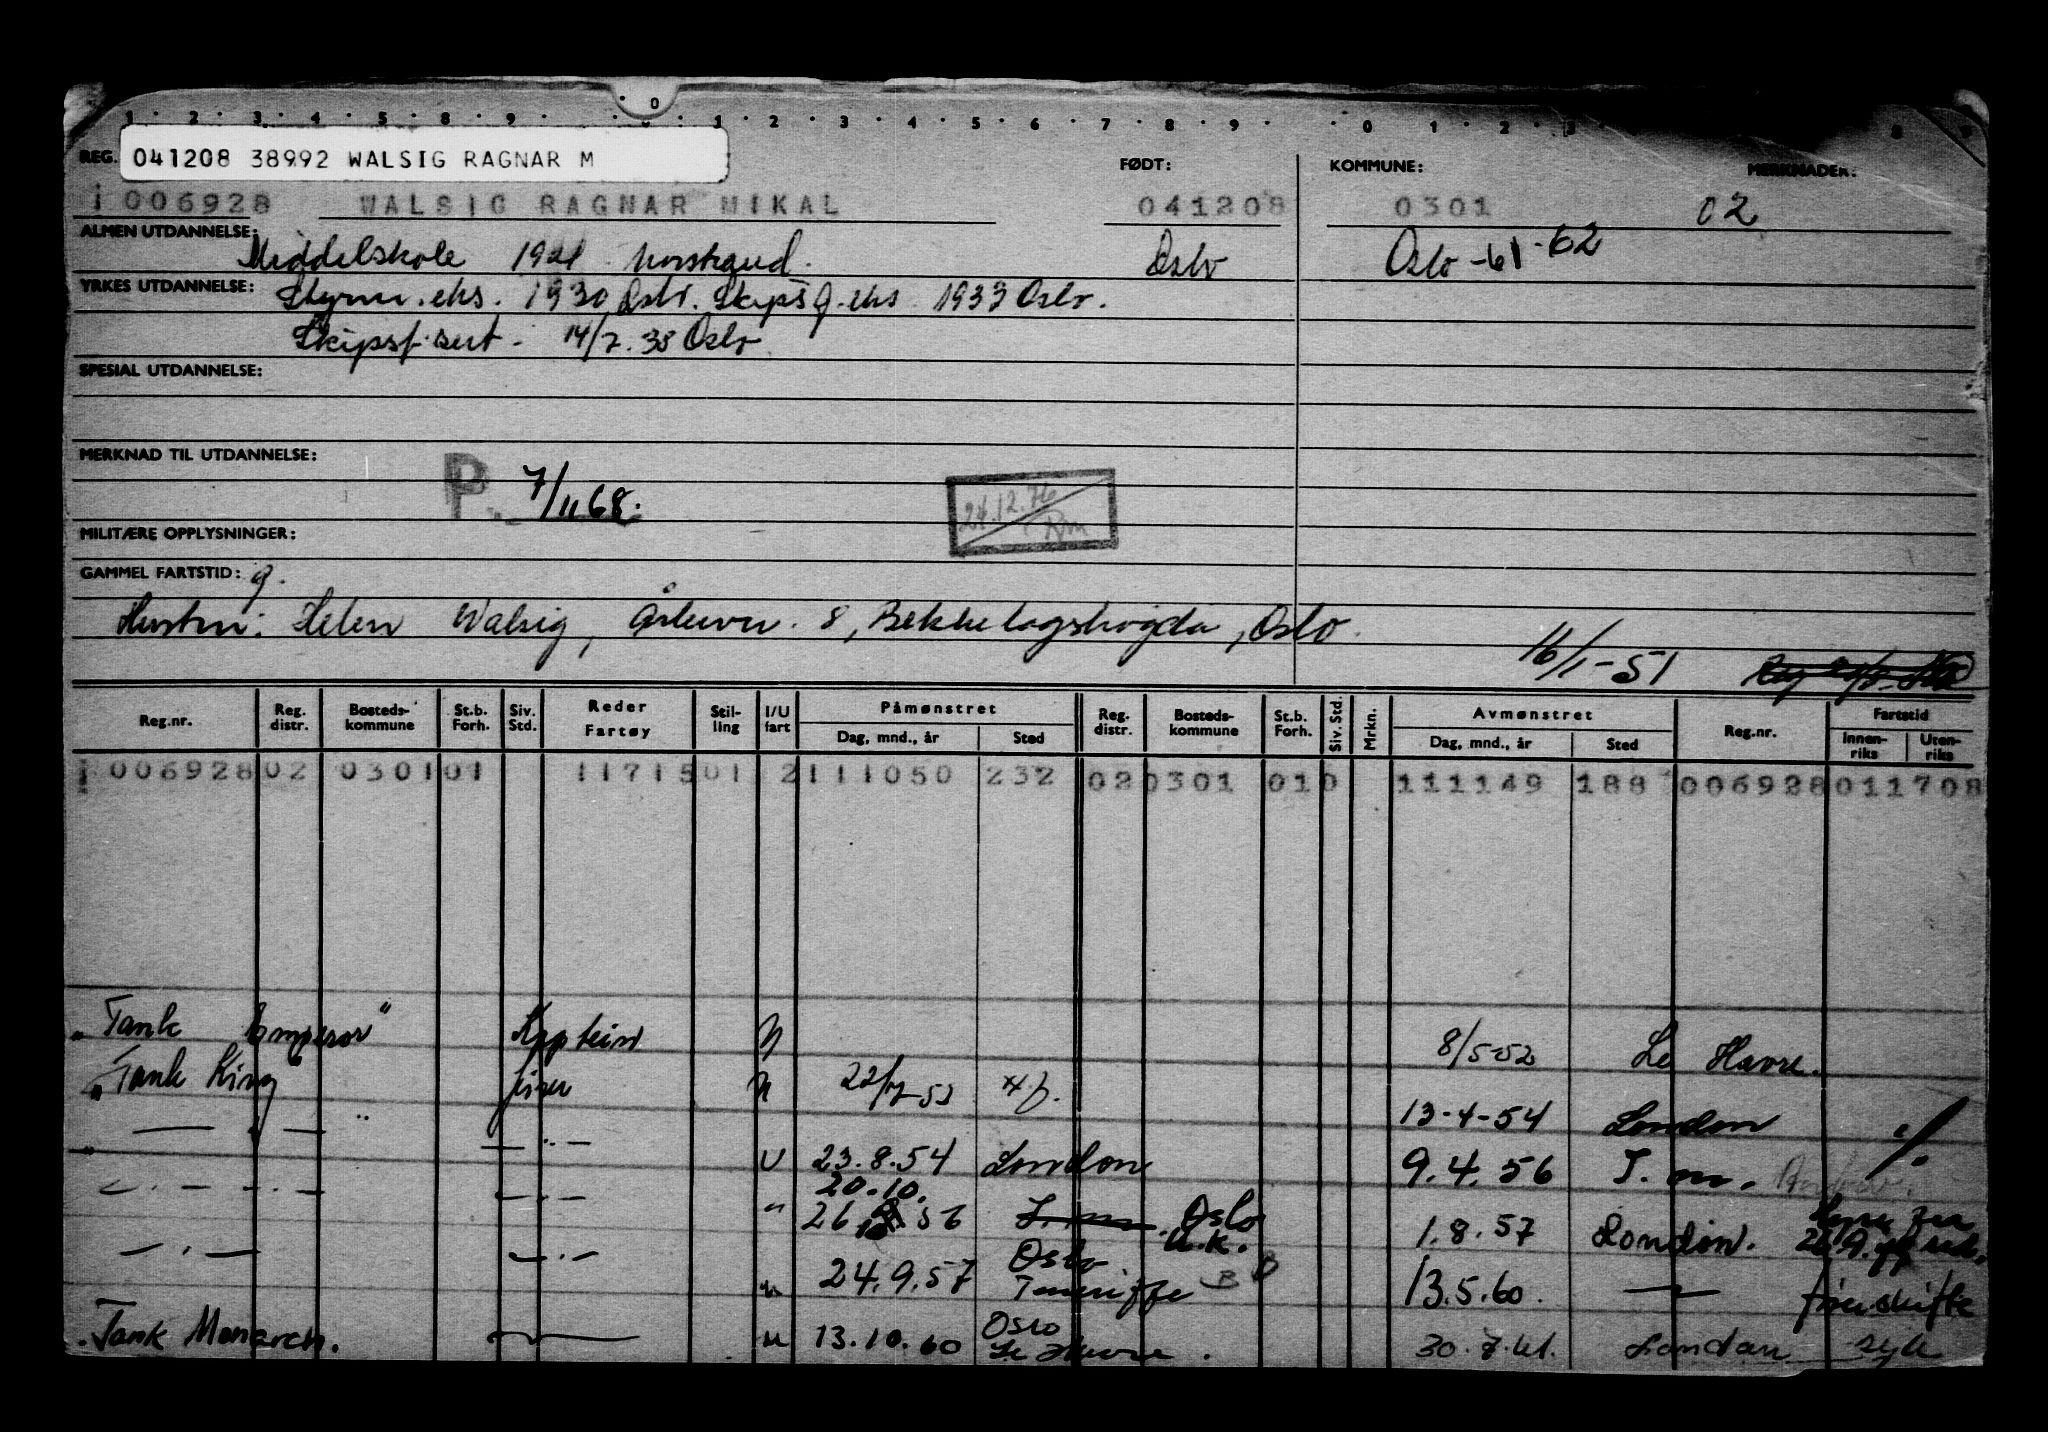 0
1 2 3 4 5 8 9 0 1 2 3 4 5 6 7 8 9 0 1 2 3 8 9
REG. 041208 38992 WALSIG RAGNAR M FØDT: KOMMUNE: MERKNADER:
1 006928 WALSIG RAGNAR MIKAL 041208 0301 02
ALMEN UTDANNELSE: Middelskole 1921 Oslo Oslo -61-62
YRKES UTDANNELSE: Styrm. eks. 1930 Oslo. Skipsf. eks 1933 Oslo.
Skipsf. sert. 14/7.38 Oslo
SPESIAL UTDANNELSE:
MERKNAD TIL UTDANNELSE:
P. 7/11 68. 24.12.76
MILITÆRE OPPLYSNINGER:
GAMMEL FARTSTID: g.
Hustru: Helen Walsig, 8, Bekkelagshøgda, Oslo.
16/1-51
Reg.nr. Reg. distr. Bosteds-kommune St.b. Forh. Siv. Std. Reder Fartøy Stil-ling I/U fart Påmønstret Dag, mnd., år Sted Reg. distr. Bosteds-kommune St.b. Forh. Siv. Std. Mrkn. Avmønstret Dag, mnd., år Sted Reg.nr. Fartstid Innen-riks Uten-riks
1 006928 02 0301 01 11715 01 2 111050 232 02 0301 01 0 111149 188 006928 011708
"Tank Emperor" Kaptein U 8/5-52 Le Havre.
"Tank King" fører U 22/7-53 13-4-54 London
— " — — " — U 23.8.54 London 9.4.56 T. m.
— " — — " — " 20.10. 26. 56 Oslo 1.8.57 London.
— " — — " — " 24.9.57 Oslo Teneriffe 13.5.60. — førerskifte
Tank Monarch. — " 13.10.60 Oslo Le Havre. 30.7.61. London syk